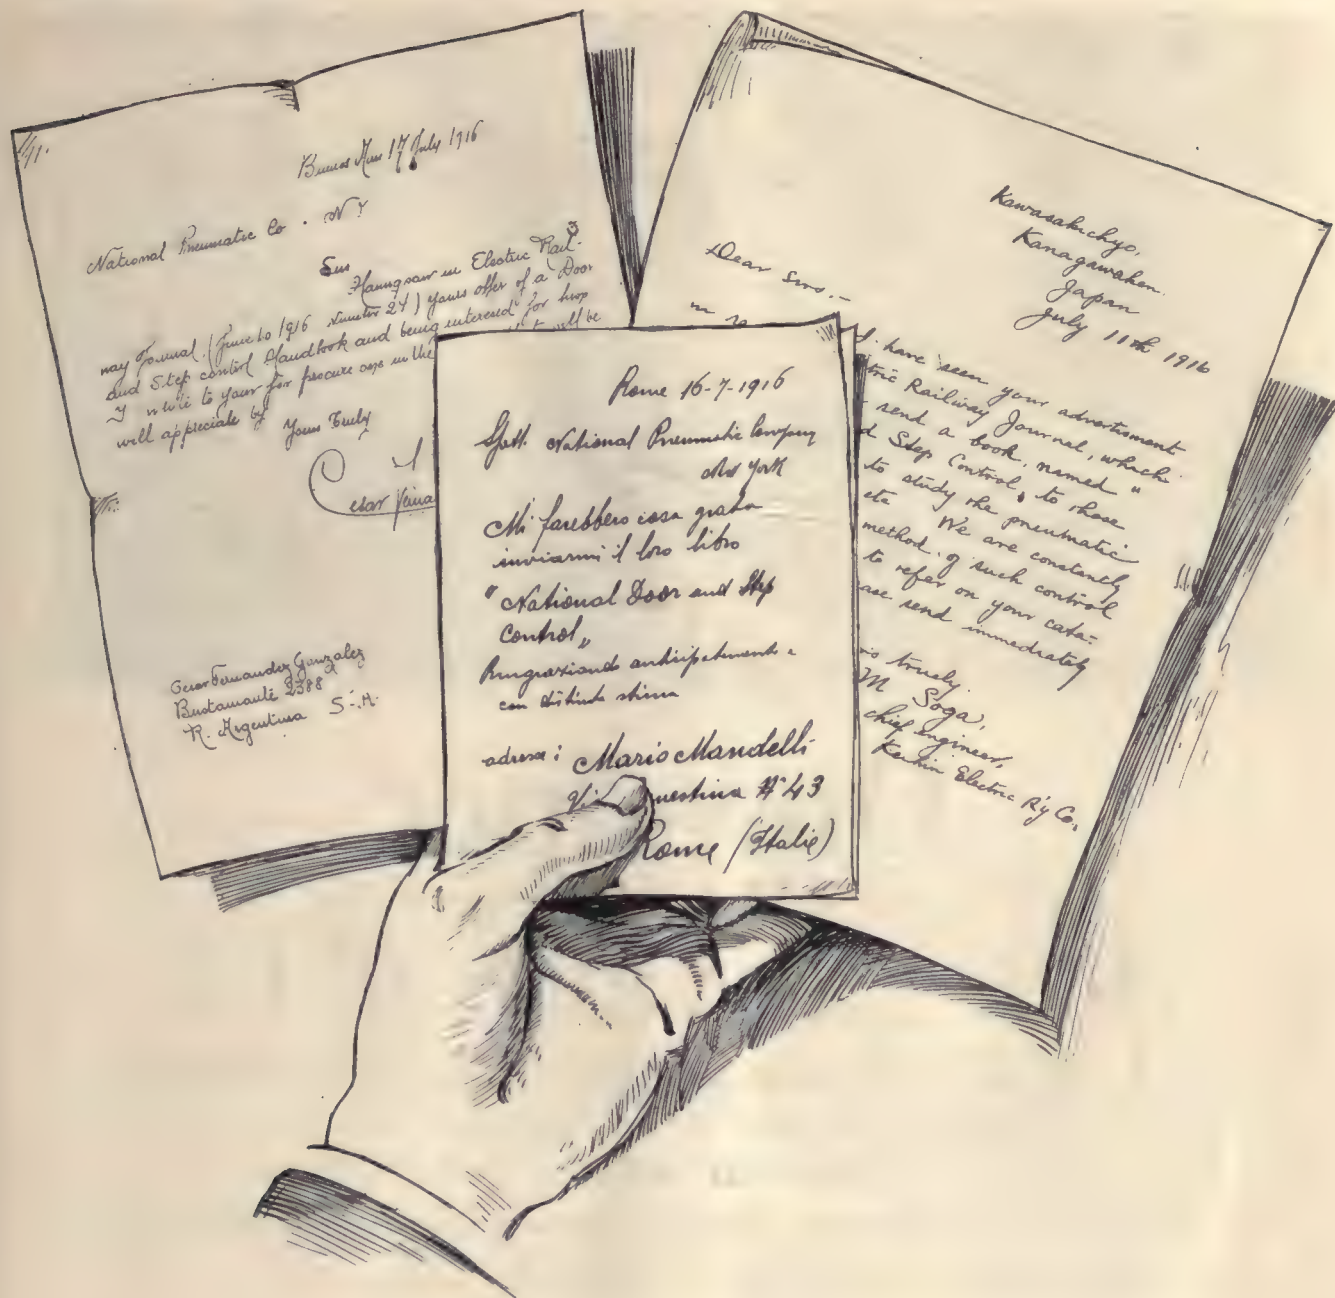 Buenos Aires 17 July 1916
National Pneumatic Co. N Y
Sirs
Having saw in Electric Rail-
way Journal (June 10 1916 Number 24) yours offer of a Door
and Step control Handbook and being interesed for
I write to your for procure one in the will be
will appreciate by
Yours truly
Cesar
Cesar Fernandez Gonzalez
Bustamante 2388
R. Argentina S-A.
Rome 16-7-1916
Spett. National Pneumatic Company
New York
Mi farebbero cosa grata
inviarmi il loro libro
"National Door and Step
Control„
Ringraziando anticipatamente
con distinta stima
adresse: Mario Mandelli
Vi uestina N° 43
Rome (Italie)
Kawasakichyo,
Kanagawaken.
Japan
July 11th 1916
Dear Sirs.-
I have seen your advertisment
tric Railway Journal, which
send a book, named "
d Step Control, to those
to study the pneumatic
etc We are constantly
method of such control
to refer on your cata=
ase send immediately
rs truely.
M Soga,
chief engineer,
Keihin Electric R'y Co.,